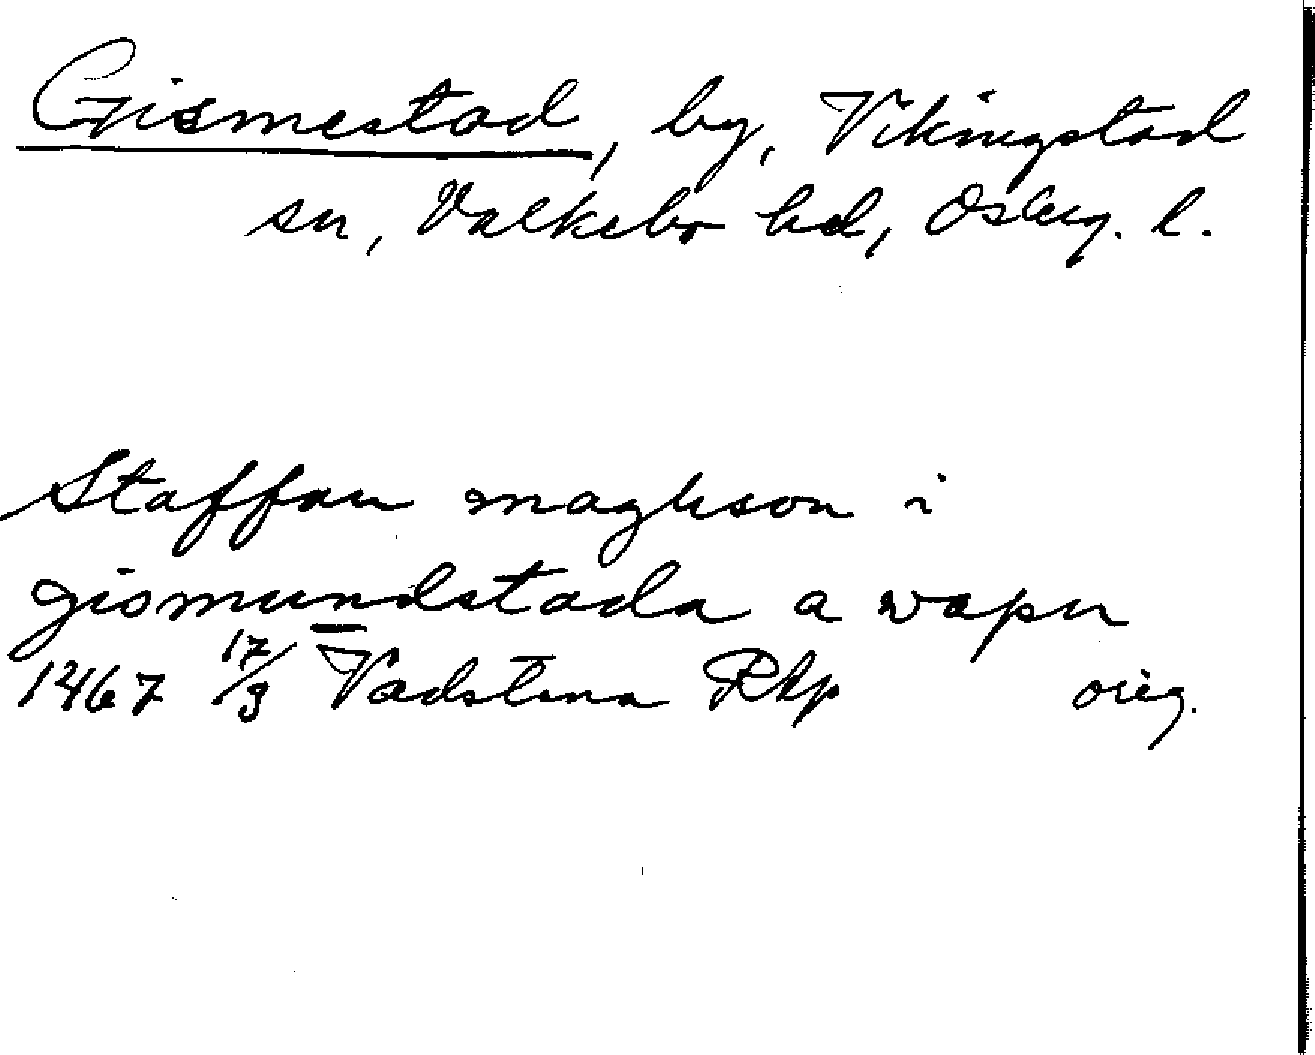 Gismestad, by, Vikingstad
sn, Valkebo hd, Östeg. l.
Staffan magnson i
gismundstada a wapn
1467 17/3 Vadstena Rkp orig.